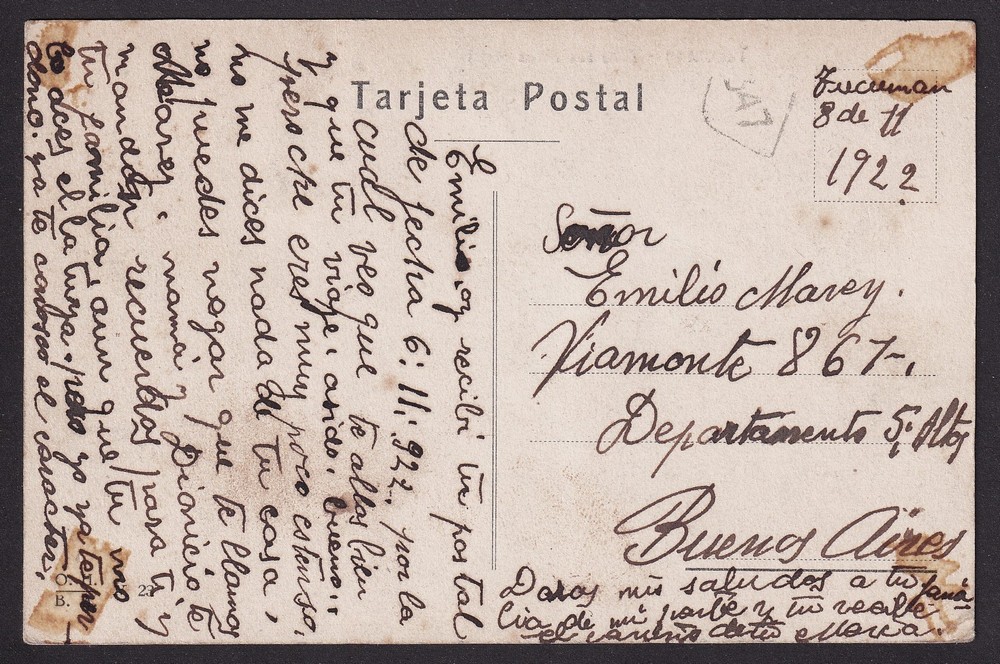 Tarjeta Postal
Tucuman
8 de 11
1922
Emilio, oy recibi tu postal
de fecha 6. 11. 922. por la
cual veo que te allas bien
y que tu viaje, a sido, bueno..
pero che eres muy poco estenso,
no me dices nada de tu casa,
no puedes negar que te llamas
Marey, mamá y Dionicio te
mandan recuerdos para ti, y
tu familia, aun que tu no
los des el la tuya, pero yo ya te per
dono. ya te conosco el caracter.
Señor
Emilio Marey.
Viamonte 867-.
Departamento 5, Altos
Buenos Aires
Daras mis saludos a tu fami
lia de mi parte y tu recibe
el cariño de tu Maria.
B.